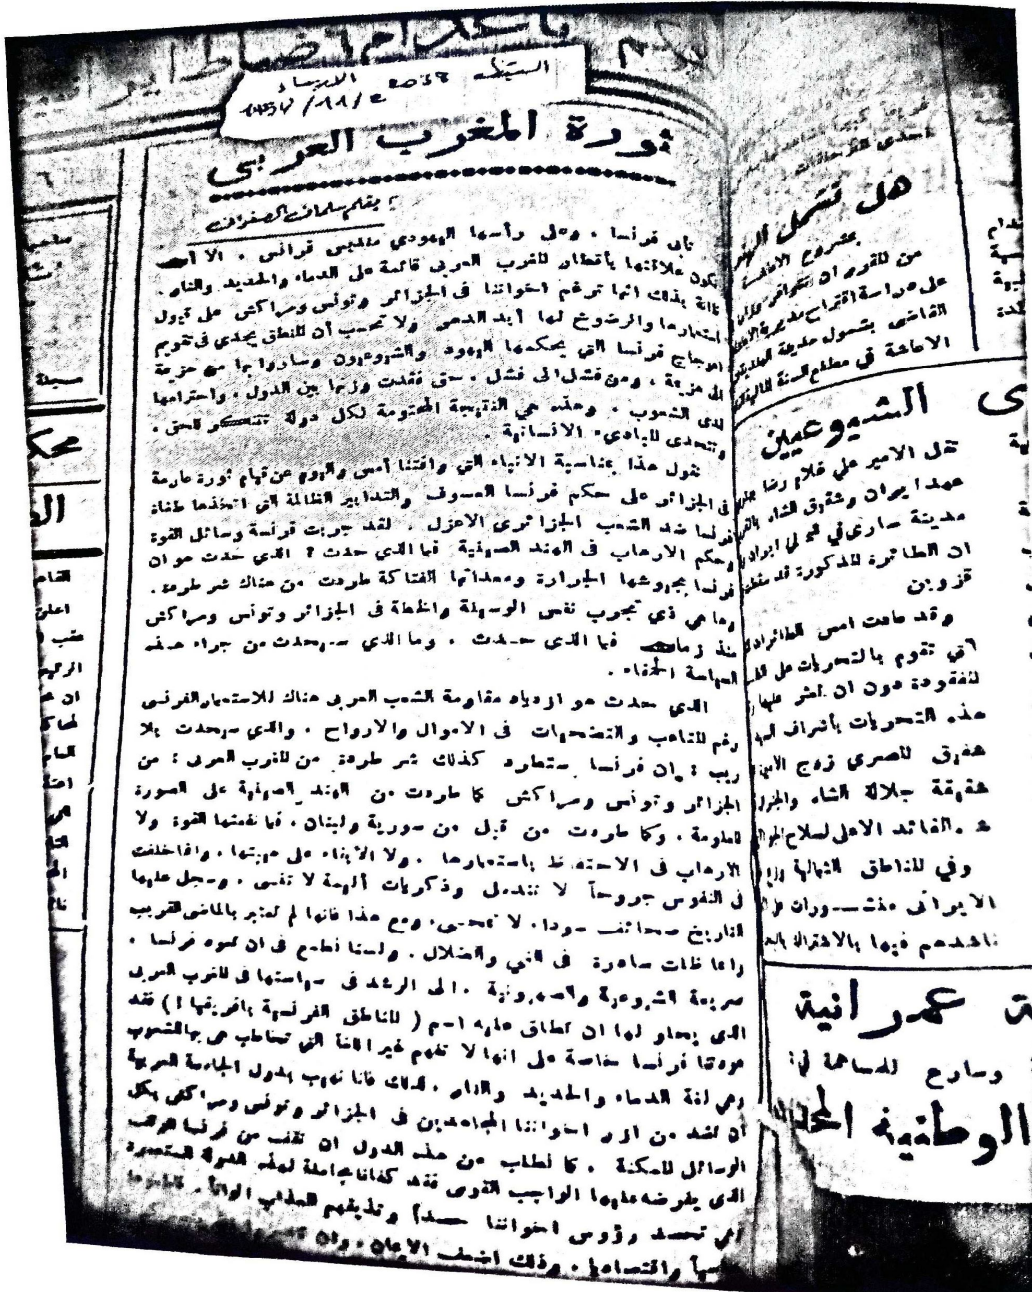 اليقظة ٢٠٣٨ الاربعاء
ثورة المغرب العربي
بقلم سلمان الصفواني
تأبى فرنسا ، وعلى رأسها اليهودي منديس فرانس ، الا أن
تكون علاقتها بأقطار المغرب العربي قائمة على الدماء والحديد والنار ،
ظانة بذلك انها ترغم اخواننا في الجزائر وتونس ومراكش على قبول
استعمارها والرضوخ لها أبد الدهر ولا تحسب أن المنطق يجدي في تقويم
اعوجاج فرنسا التي يحكمها اليهود والشيوعيون وساروا بها من هزيمة
الى هزيمة ، ومن فشل الى فشل ، حتى فقدت وزنها بين الدول ، واحترامها
لدى الشعوب . وهذه هي النتيجة المحتومة لكل دولة تتنكر للحق ،
وتتحدى المبادىء الانسانية .
نقول هذا بمناسبة الانباء التي وافتنا أمس واليوم عن قيام ثورة عارمة
في الجزائر على حكم فرنسا العسوف والتدابير الظالمة التي اتخذها طغاة
فرنسا ضد الشعب الجزائري الاعزل . لقد جربت فرنسة وسائل القوة
وحكم الارهاب في الهند الصينية فما الذي حدث ؟ الذي حدث هو ان
فرنسا بجيوشها الجرارة ومعداتها الفتاكة طردت من هناك شر طردة .
وها هي ذي تجرب نفس الوسيلة والخطة في الجزائر وتونس ومراكش
منذ زمان فما الذي حدث . وما الذي سيحدث من جراء هذه
السياسة الحمقاء .
الذي حدث هو ازدياد مقاومة الشعب العربي هناك للاستعمار الفرنسي
رغم المتاعب والتضحيات في الاموال والارواح . والذي سيحدث بلا
ريب : ان فرنسا ستطرد كذلك شر طردة من المغرب العربي : من
الجزائر وتونس ومراكش كما طردت من الهند الصينية على الصورة
المعلومة ، وكما طردت من قبل من سورية ولبنان ، فما نفعتها القوة ولا
الارهاب في الاحتفاظ باستعمارها . ولا الابقاء على هيبتها . وانما خلفت
في النفوس جروحاً لا تندمل وذكريات أليمة لا تنسى . وسجل عليها
التاريخ صحائف سوداء لا تمحى ، ومع هذا فانها لم تعتبر بالماضي القريب
وانما ظلت سادرة في الغي والضلال . ولسنا نطمع في ان تعود فرنسا ،
صريعة الشيوعية والصهيونية ، الى الرشد في سياستها في المغرب العربي
الذي يحلو لها ان تطلق عليه اسم ( المناطق الفرنسية بافريقيا ! ) فقد
عودتنا فرنسا خاصة على انها لا تفهم غير اللغة التي تخاطب هي بها الشعوب
وهي لغة الدماء والحديد والنار . لذلك فاننا نهيب بدول الجامعة العربية
أن تشد من ازر اخواننا المجاهدين في الجزائر وتونس ومراكش بكل
الوسائل الممكنة . كما نطلب من هذه الدول ان تقف من فرنسا الموقف
الذي يفرضه عليها الواجب القومي فقد كفانا مجاملة لهذه الدولة المستعمرة
التي تحصد رؤوس اخواننا حصداً وتذيقهم العذاب الوانا
واقتصاديا . وذلك اضعف الايمان .
هل تشمل
بمشروع الاعاشة
من المقرر ان
على دراسة اقتراح مديرية
القاضي بشمول
الاعاشة في مطلع السنة المالية
الشيوعيين
تقل الامير علي غلام رضا
عهد ايران وشقيق الشاه
مدينة ساري في
ان الطائرة المذكورة قد سقطت
قزوين
وقد عادت امس الطائرات
التي تقوم بالتحريات على
المفقودة دون ان تعثر عليها
هذه التحريات بأشراف
شفيق المصري زوج
شقيقة جلالة الشاه
القائد الاعلى لسلاح
وفي المناطق الشمالية
الايراني
ناشدهم فيها بالاشتراك
عمرانية
وسارع للمساهمة في :
الوطنية